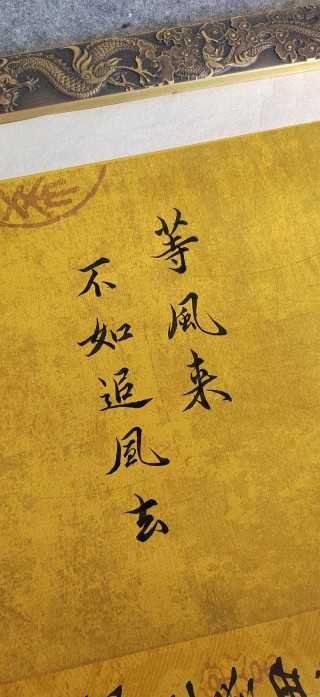 等風来
不如追風去